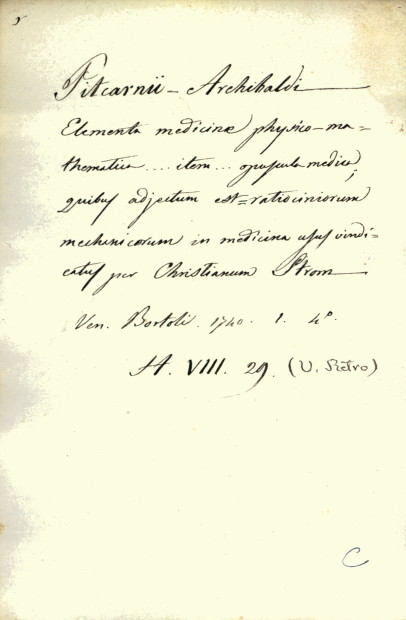 Pitcarnii - Archibaldi
Elementa medicinæ physico-ma=
thematica .... item ... opuscula medica,
quibus adjectum est=ratiociniorum
mechanicorum in medicina usus vindi=
catus per Christianum Strom
Ven. Bortoli. 1740. 1. 4º.
A. VIII. 29. (V. Pietro)
C